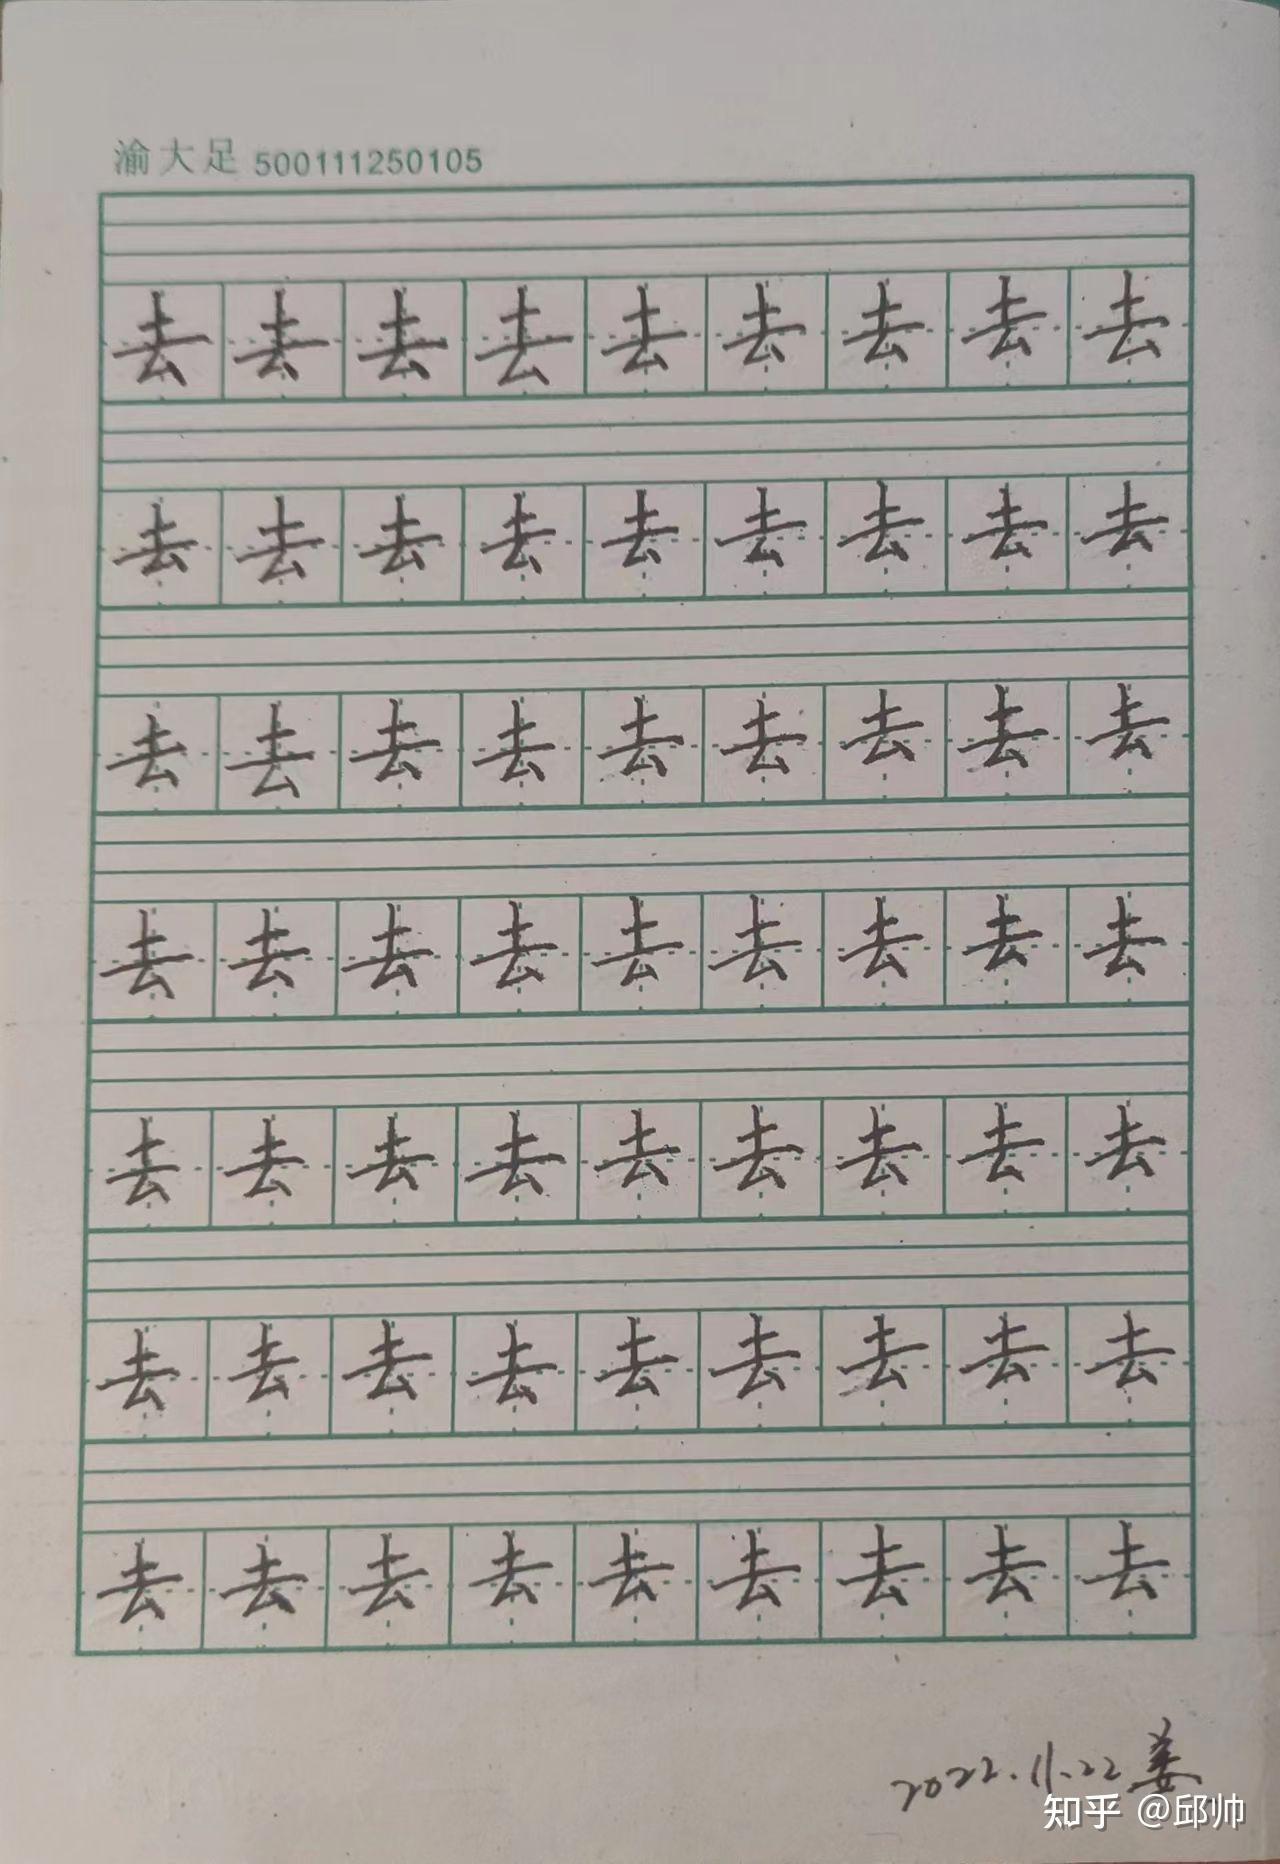 渝大足 500111250105
去去去去去去去去去
去去去去去去去去去
去去去去去去去去去
去去去去去去去去去
去去去去去去去去去
去去去去去去去去去
去去去去去去去去去
2022.11.22 姜
知乎 @邱帅